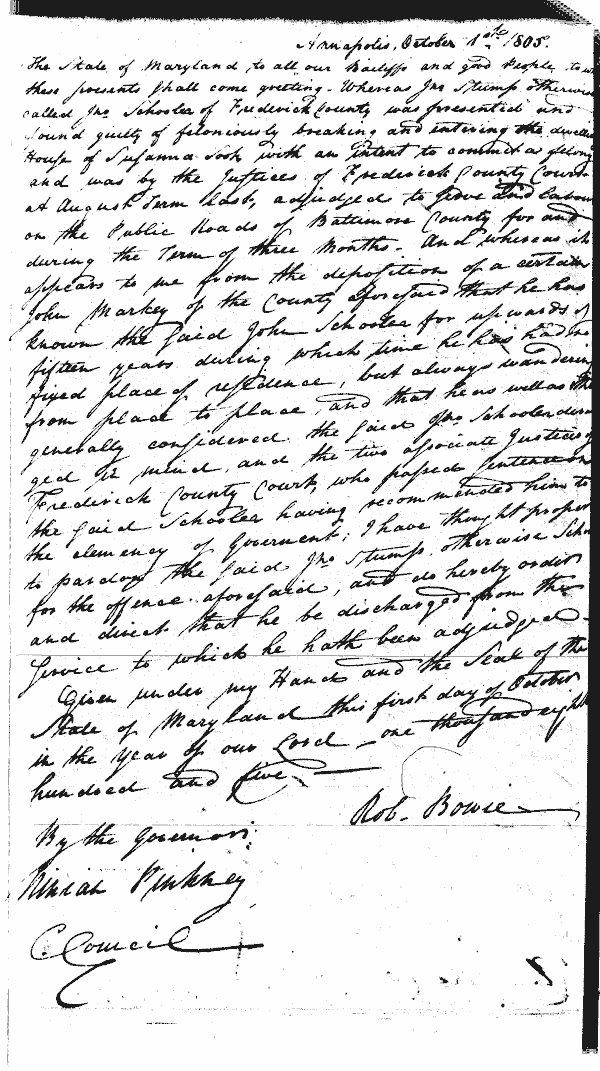 Annapolis, October 1st 1805.
The State of Maryland, to all our Bailiffs and good People, to w
these presents shall come greeting - Whereas Jno Stump otherwise
called Jno Schooler of Frederick County was presented and
found guilty of feloniously breaking and entering the dwellin
House of Susanna with an intent to commit a felony
and was by the Justices of Frederick County Court
at August Term last, adjudged to serve and labour
on the Public Roads of Baltimore County for and
during the Term of three Months. And whereas it
appears to me from the deposition of a certain
John Markey of the County aforesaid that he has
known the said John Schooler for upwards of
fifteen years during which time he has had no
fixed place of residence, but always wandering
from place to place, and that he as well as the
generally considered the said Jno Schooler deran
ged in mind, and the two associate Justices of
Frederick County Court, who passed sentence on
the said Schooler having recommended him to
the clemency of Goverment; I have thought proper
to pardon the said Jno Stump, otherwise Schoo
for the offence aforesaid, and do hereby order
and direct that he be discharged from the
service to which he hath been adjudged -
Given under my Hand and the Seal of the
State of Maryland this first day of October
in the year of our Lord one thousand eight
hundred and five. -
Rob. Bowie
By the Governor:
Ninian Pinkney
C Council